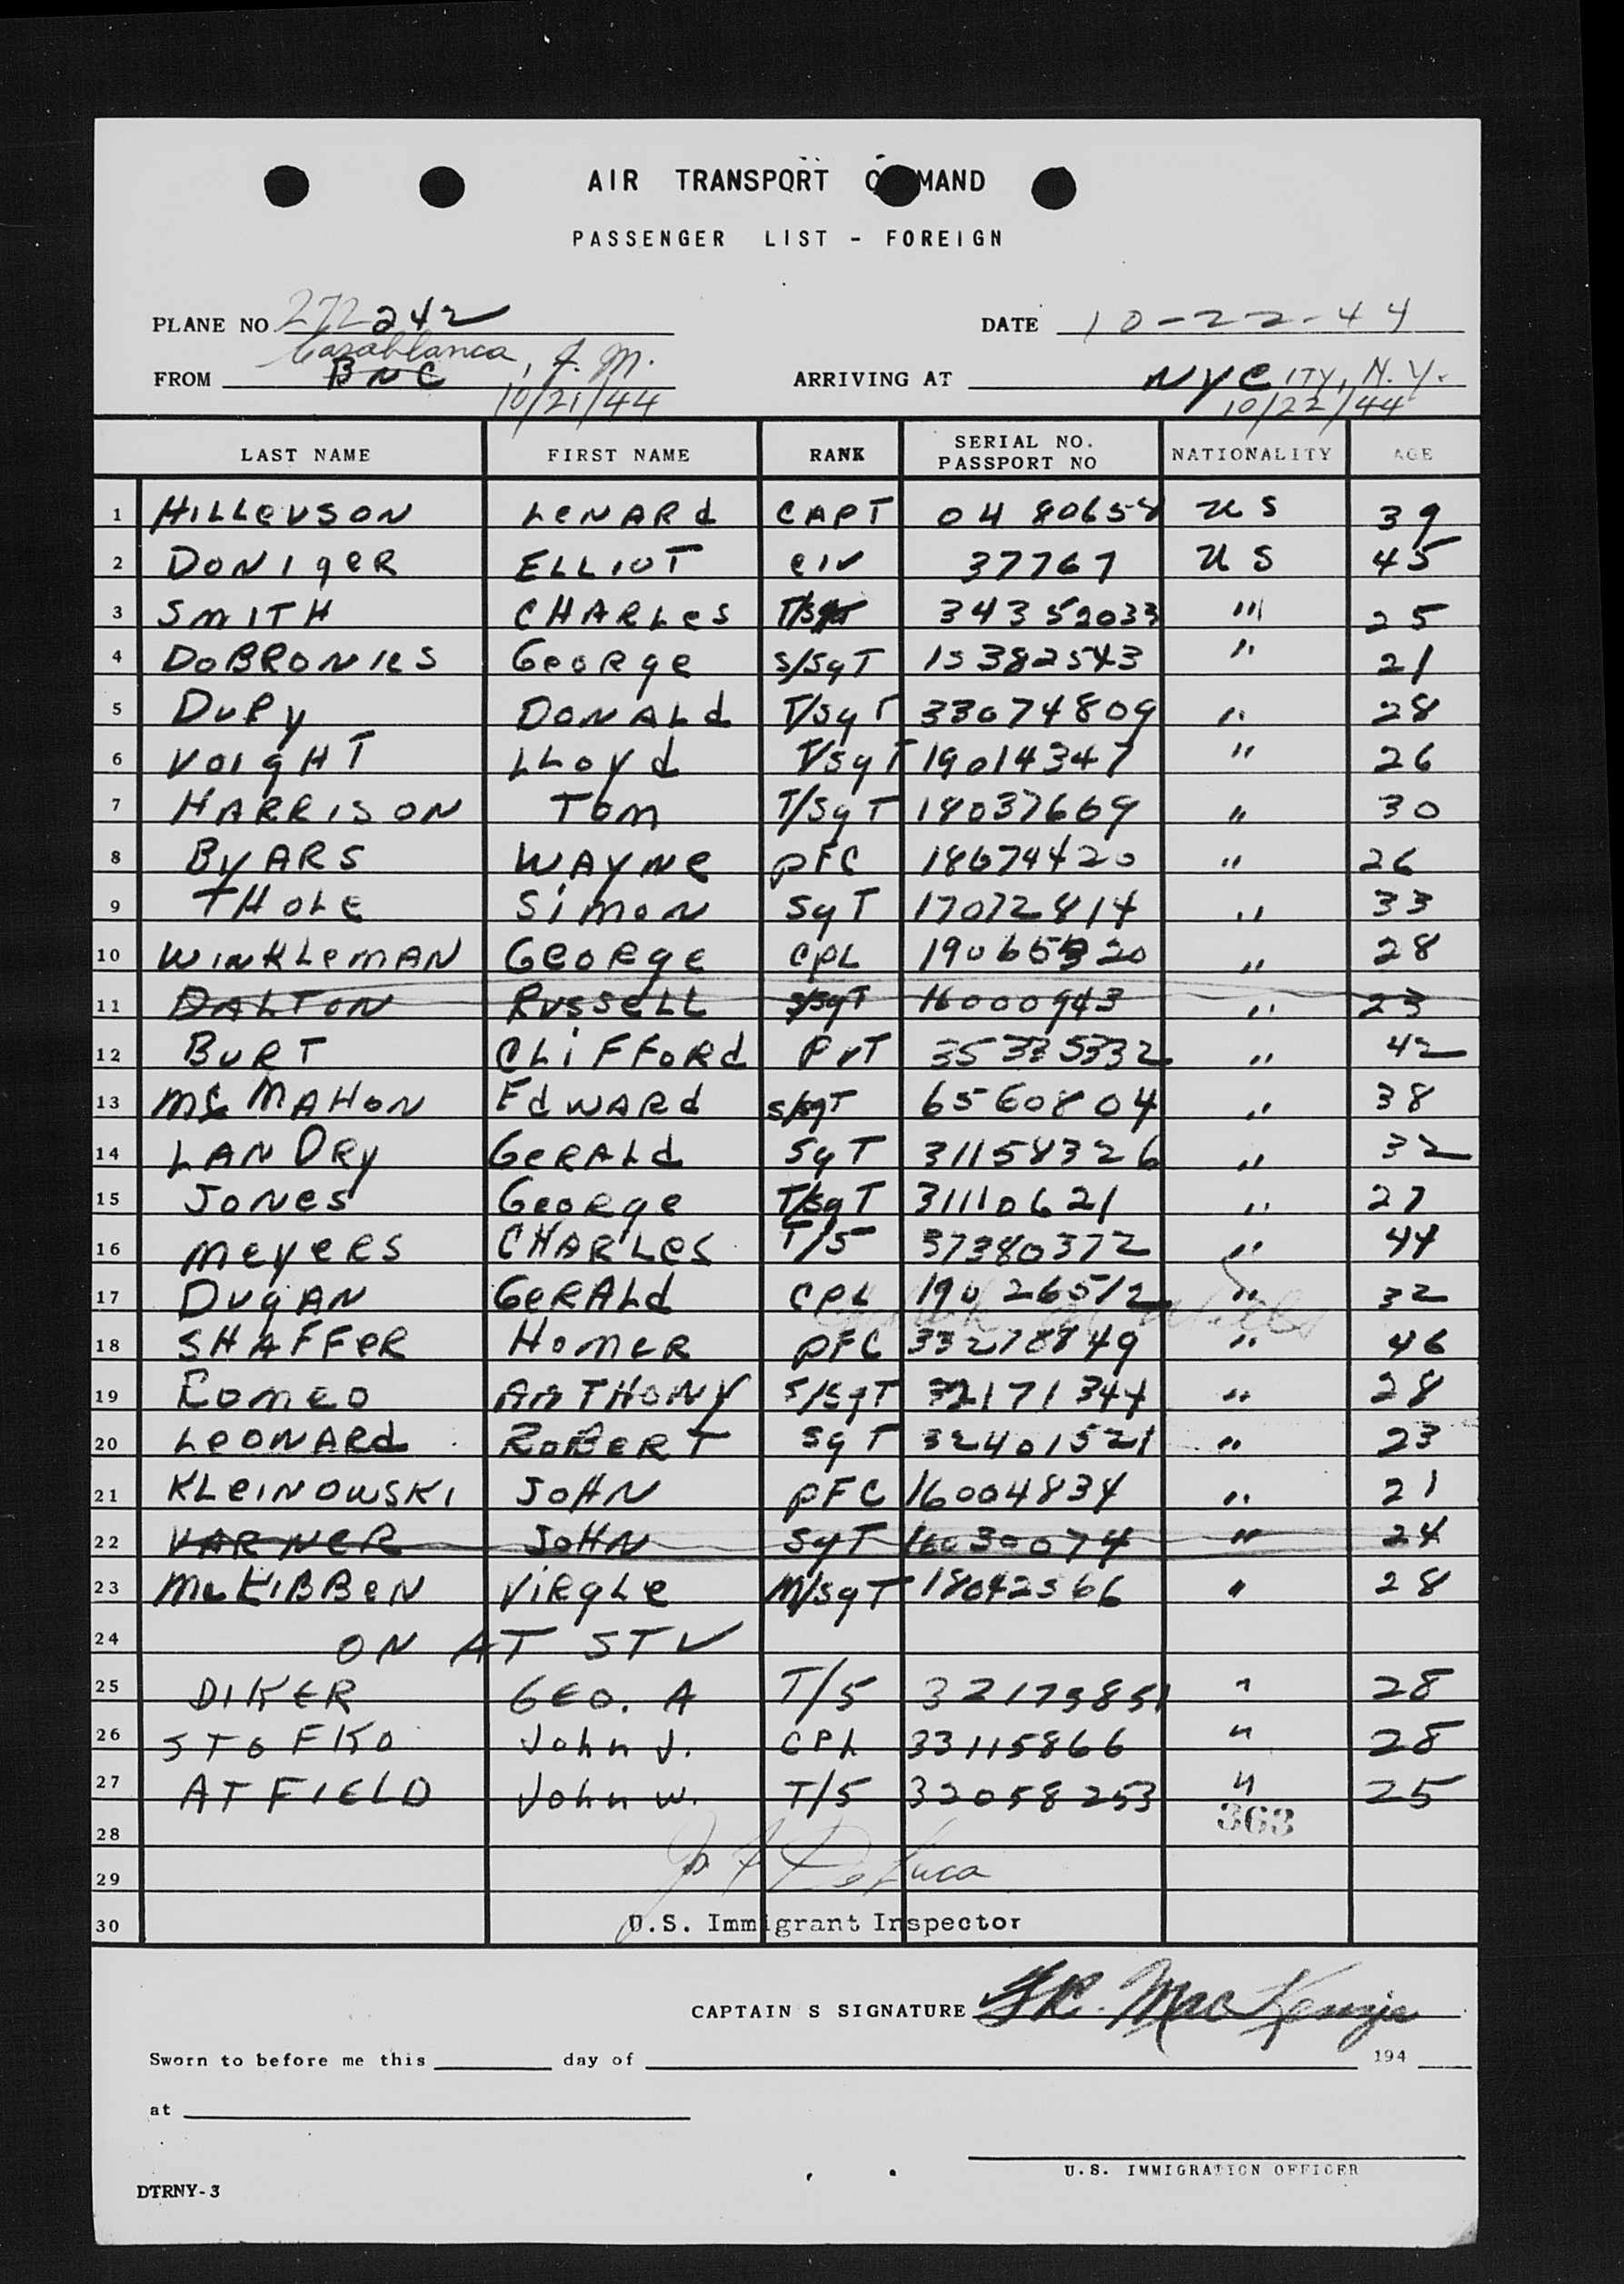 AIR TRANSPORT COMMAND
PASSENGER LIST - FOREIGN
PLANE NO 272242 DATE 10-22-44
Casablanca, F. M.
FROM BNC ARRIVING AT NYCITY, N.Y.
10/21/44 10/22/44
LAST NAME FIRST NAME RANK SERIAL NO. PASSPORT NO NATIONALITY AGE
1 HILLEVSON LENARd CAPT 04 80658 US 39
2 DONIgER ELLIOT CIV 37767 US 45
3 SMITH CHARLeS T/SgT 34352033 " 25
4 DOBRONIES GeORge S/SgT 15382543 " 21
5 Dupy DONALd T/SgT 33074809 " 28
6 VOIgHT LLoyd T/SgT 19014347 " 26
7 HARRISON Tom T/SgT 18037669 " 30
8 ByARS WAyNe PFC 18674420 " 26
9 THOLe SimoN SgT 17072814 " 33
10 WINKLeMAN GEORge CPL 19065320 " 28
11 DALTON RUSSeLL S/SgT 16000943 " 23
12 BURT CLiFFORd PVT 35335332 " 42
13 Mc MAHON EdWARd S/SgT 6560804 " 38
14 LANDRy GeRALd SgT 31158326 " 32
15 JONeS GeORge T/SgT 31110621 " 27
16 MeyeRS CHARLeS T/5 37380372 " 44
17 DUgAN GeRALd CPL 19026512 " 32
18 SHAFFeR HomeR PFC 33278849 " 46
19 Romeo ANTHONY S/SgT 32171344 " 28
20 LeONARd ROBERT SgT 32401521 " 23
21 KLeINOWSKI JOHN PFC 16004834 " 21
22 VARNeR JOHN SgT 16030074 " 24
23 McKIBBeN ViRgLe M/SgT 18042566 " 28
24 ON AT STV
25 DIKER GEO. A T/5 32175851 " 28
26 STOFKO John J. CPL 33115866 " 28
27 ATFIELD John W. T/5 32058253 " 25
363
28
29 De Luca
30 U.S. Immigrant Inspector
CAPTAIN S SIGNATURE MacKenzie
Sworn to before me this day of 194
at
U.S. IMMIGRATION OFFICER
DTRNY-3